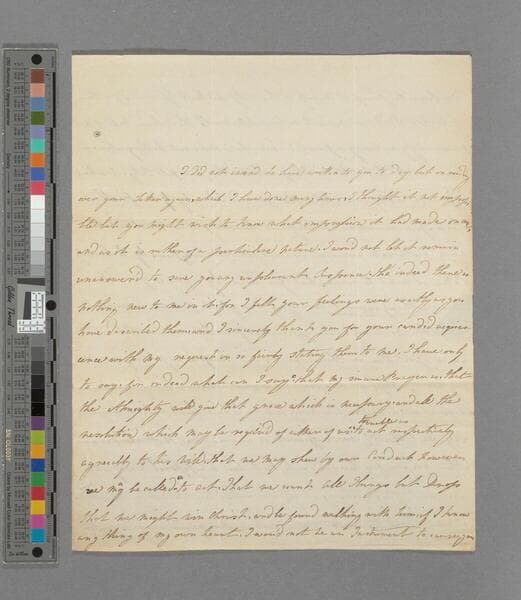 I did not intend to have written to you to day but on reading
over your Letter again, which I have done many times, I thought it not impossi
ble but you might wish to know what impression it had made on me,
and as it is rather of a particular nature, I would not let it remain
unanswered to save you any unpleasant suspence, tho' indeed there is
nothing new to me in it, for I felt your feelings were exactly as you
have described them, and I sincerely thank you for your candid acquies
cence with my request in so fairly stating them to me. I have only
to say, for indeed what can I say, that my sincere Prayer is, that
the Almighty will give that grace which is necessary, and all the
resolution which may be required of either of us to act respectively
agreeably to his will, that we may shew by our conduct however
we may be called to act, that we count all things but Dross
that we might win Christ, and be found walking with him, if I know
any thing of my own heart, I would not be an Instrument to